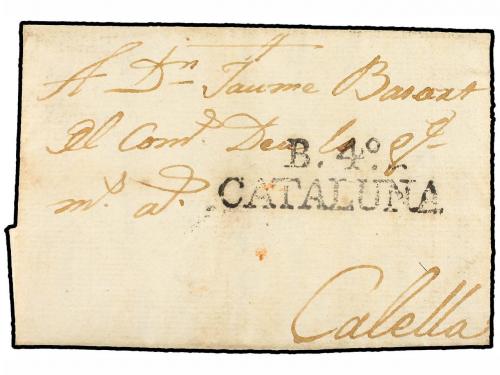 A Dn Jaume Basart
El Comt. Deu los gt.
ms. ad.
B. 4º.
CATALUNA
Calella